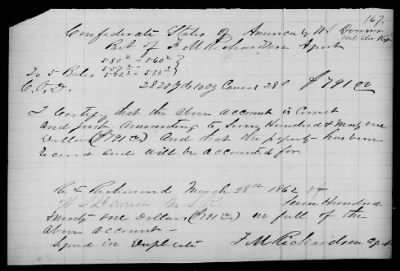 167.
Confederate States of America by W S Donovan
Bot of F. M. Richardson Agent
550 - 560
557
To 5 Bales 572 - 528
C. O. D. 2828 28 $791 00
I certify that the above account is Correct
and just amounting to Seven Hundred & Ninety one
Dollars ($791 00) And that the property has been
Received and will be accounted for
Richmond March 28th 1862
W S Donovan Seven Hundred
Ninety one dollars ($791 00) in full of the
above account -
Signed in Duplicate F. M. Richardson Agt